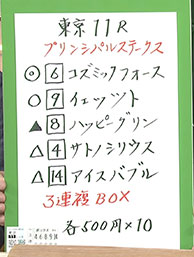 東京11R
プリンシパルステークス
◎ 6 コズミックフォース
○ 9 イェッツト
▲ 8 ハッピーグリン
△ 4 サトノシリウス
△ 14 アイスバブル
3連複BOX
各500円×10